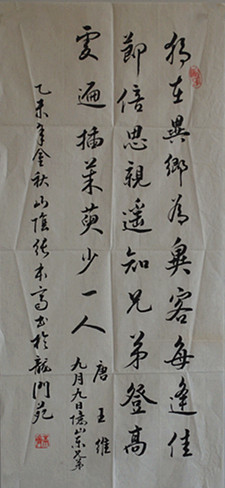 独在異鄉為異客每逢佳
節倍思親遥知兄弟登高
處遍插茱萸少一人
唐 王維
九月九日憶山東兄弟
乙未年金秋山陰张木高书於龍門苑